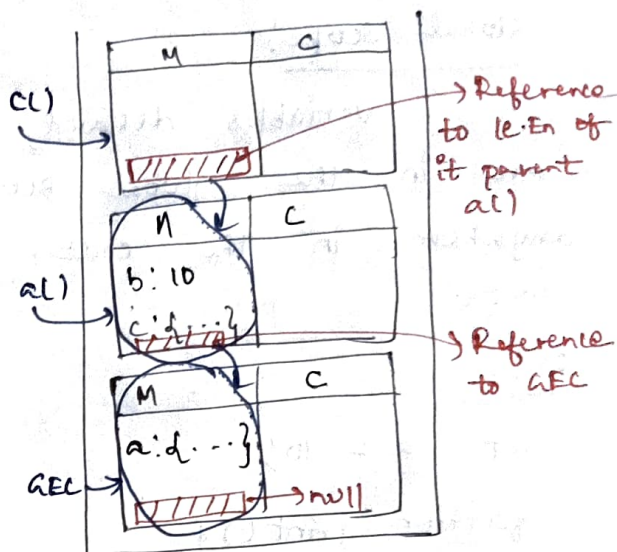 M C
c()
Reference
to le.En of
it parent
a()
M C
b: 10
c: {...}
a()
Reference
to GEC
M C
a: {....}
GEC
null